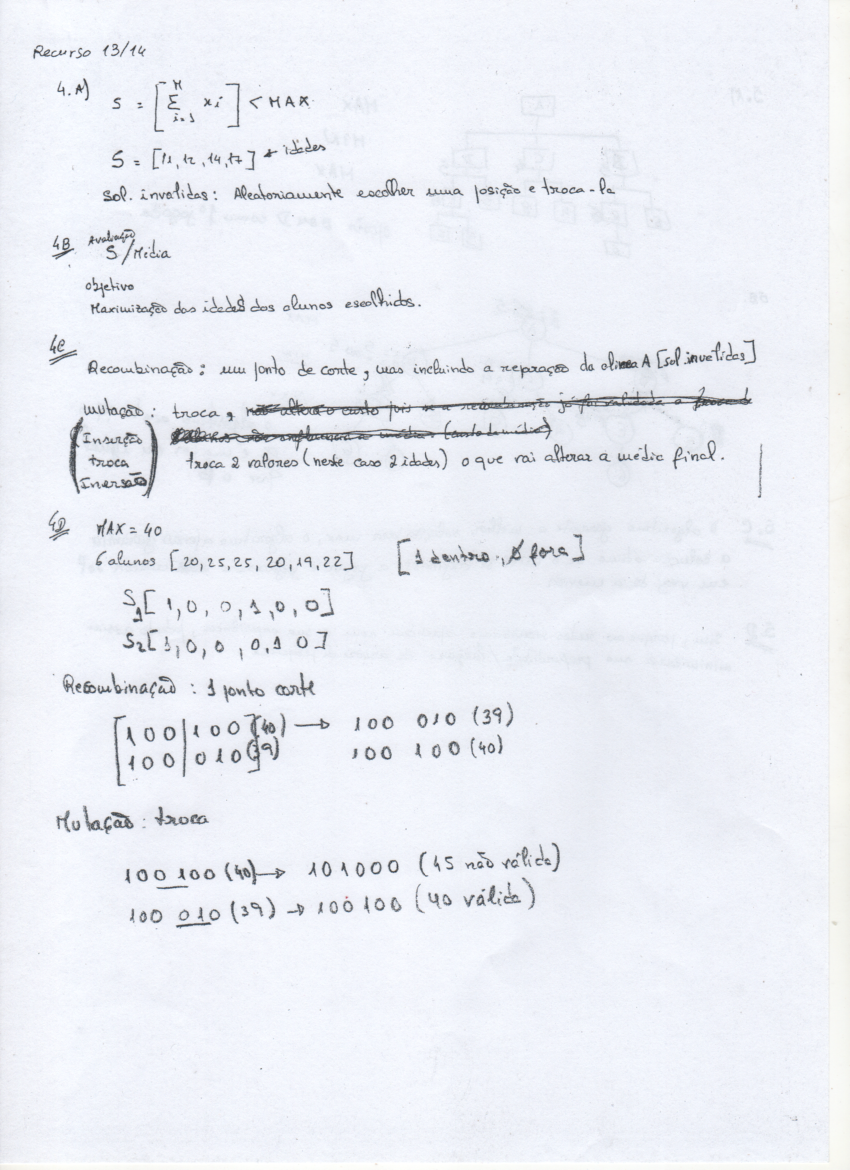 Recurso 13/14
4.A) S = [ M Σ i=1 xi ] < MAX
S = [11, 12, 14, 17] → idades
Sol. invalidas: Aleatoriamente escolher uma posição e troca-la
4B Avaliação
S/Média
objetivo
Maximização das idades dos alunos escolhidos.
4C
Recombinação: um ponto de corte, mas incluindo a repração da alinea A [sol. invalidas]
mutação: troca,
(Inserção
troca
Inversão)
troca 2 valores (neste caso 2 idades) o que vai alterar a média final.
4D MAX = 40
6 alunos [20, 25, 25, 20, 19, 22] [1 dentro, 0 fora]
S1[ 1, 0, 0, 1, 0, 0]
S2[ 1, 0, 0, 0, 1 0]
Recombinação: 1 ponto corte
[100|100] (40) → 100 010 (39)
[100|010] (39) 100 100 (40)
Mutação: troca
100 100 (40) → 101000 (45 não válida)
100 010 (39) → 100100 (40 válida)